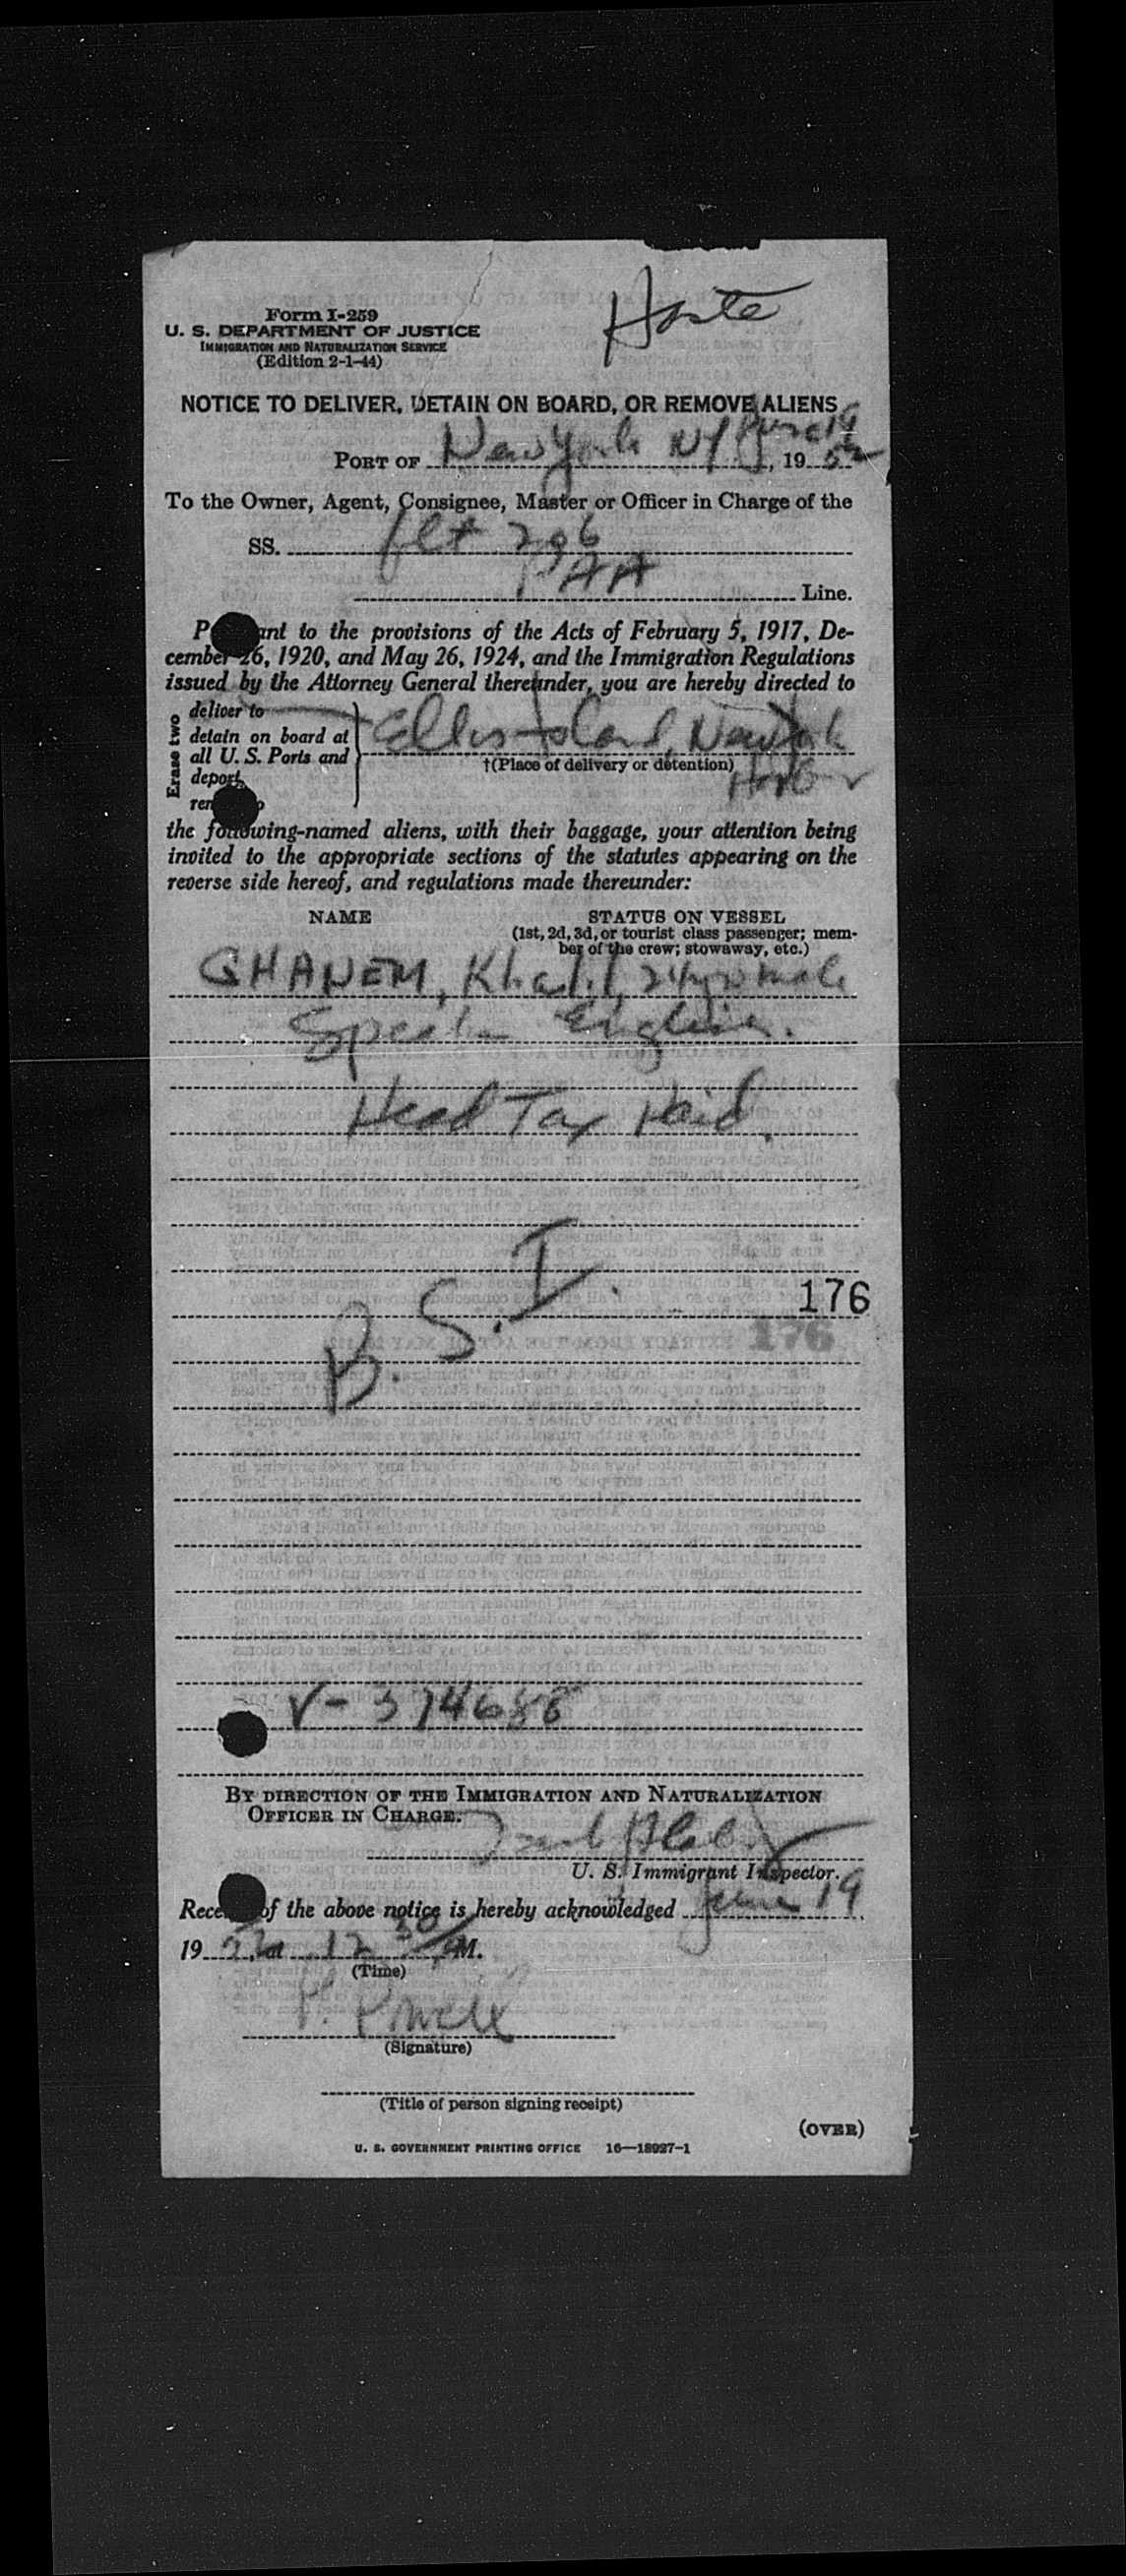 Form I-259
U. S. DEPARTMENT OF JUSTICE
IMMIGRATION AND NATURALIZATION SERVICE
(Edition 2-1-44)
NOTICE TO DELIVER, DETAIN ON BOARD, OR REMOVE ALIENS
PORT OF New York NY June 19, 1952
To the Owner, Agent, Consignee, Master or Officer in Charge of the
SS. flt 296
PAA Line.
P ant to the provisions of the Acts of February 5, 1917, De-
cember 26, 1920, and May 26, 1924, and the Immigration Regulations
issued by the Attorney General thereunder, you are hereby directed to
Erase two
deliver to
detain on board at
all U. S. Ports and
deport
Ellis Island, New York
†(Place of delivery or detention)
Harbor
the following-named aliens, with their baggage, your attention being
invited to the appropriate sections of the statutes appearing on the
reverse side hereof, and regulations made thereunder:
NAME
STATUS ON VESSEL
(1st, 2d, 3d, or tourist class passenger; mem-
ber of the crew; stowaway, etc.)
GHANEM, Khalil, 24 yrs male
Speaks English.
Head Tax Paid.
B. S. I.
176
176
V-374688
BY DIRECTION OF THE IMMIGRATION AND NATURALIZATION
OFFICER IN CHARGE.
U. S. Immigrant Inspector.
Rece of the above notice is hereby acknowledged June 19
1952, at 12 30 M.
(Time)
P. Powell
(Signature)
(Title of person signing receipt)
(OVER)
U. S. GOVERNMENT PRINTING OFFICE 16—18927-1